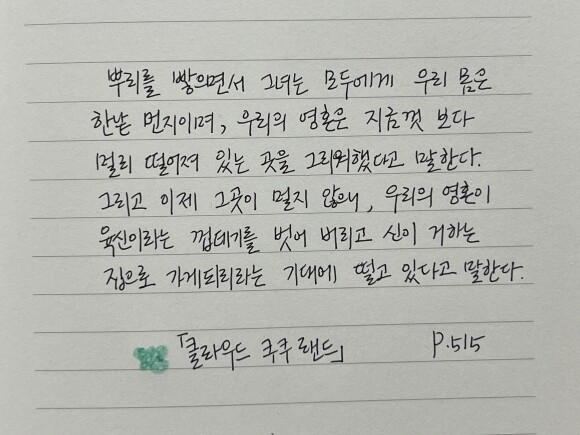 뿌리를 빻으면서 그녀는 모두에게 우리 몸은
한낱 먼지이며, 우리의 영혼은 지금껏 보다
멀리 떨어져 있는 곳을 그리워했다고 말한다.
그리고 이제 그곳이 멀지 않으니, 우리의 영혼이
육신이라는 껍데기를 벗어 버리고 신이 거하는
집으로 가게되리라는 기대에 떨고 있다고 말한다.
「클라우드 쿠쿠 랜드」 P.515